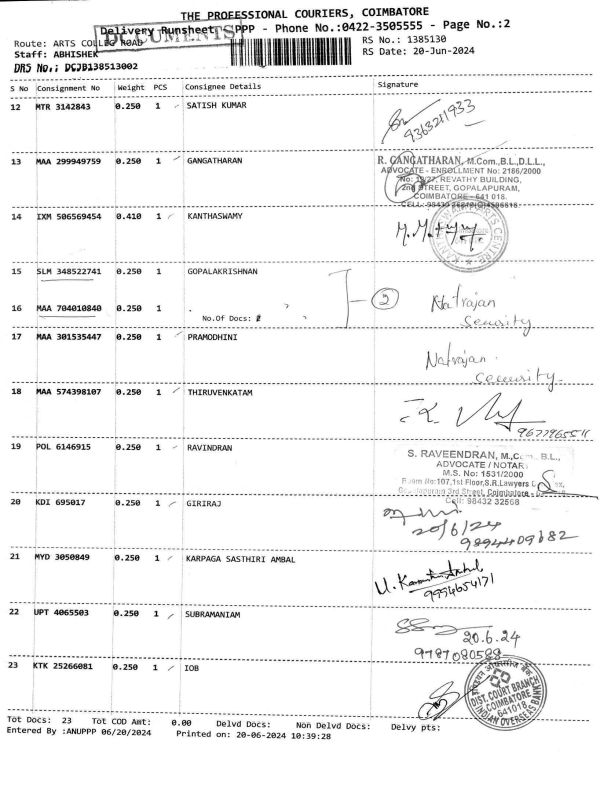 THE PROFESSIONAL COURIERS, COIMBATORE
Delivery Runsheet PPP - Phone No.:0422-3505555 - Page No.:2
DOCUMENTS
Route: ARTS COLLEG ROAD
RS No.: 1385130
Staff: ABHISHEK
RS Date: 20-Jun-2024
DRS No.: DCJB138513002
S No Consignment No Weight PCS Consignee Details Signature
12 MTR 3142843 0.250 1 SATISH KUMAR
9363211933
13 MAA 299949759 0.250 1 GANGATHARAN
R. GANGATHARAN, M.Com.,B.L.,D.L.L.,
ADVOCATE - ENROLLMENT No: 2186/2000
REVATHY BUILDING,
2nd STREET, GOPALAPURAM,
COIMBATORE - 641 018.
14 IXM 506569454 0.410 1 KANTHASWAMY
15 SLM 348522741 0.250 1 GOPALAKRISHNAN
16 MAA 704010840 0.250 1 .
No.Of Docs:
2 Natrajan
Security
17 MAA 301535447 0.250 1 PRAMODHINI
Natrajan
18 MAA 574398107 0.250 1 THIRUVENKATAM
19 POL 6146915 0.250 1 RAVINDRAN
S. RAVEENDRAN, M.,Com., B.L.,
ADVOCATE / NOTARY
M.S. No: 1531/2000
Room No:107,1st Floor,S.R.Lawyers
3rd Street, Coimbatore
Cell: 98432 32568
20 KDI 695017 0.250 1 GIRIRAJ
20/6/24
9894409682
21 MYD 3050849 0.250 1 KARPAGA SASTHIRI AMBAL
9994654171
22 UPT 4065503 0.250 1 SUBRAMANIAM
20.6.24
9787080588
23 KTK 25266081 0.250 1 IOB
DIST. COURT BRANCH
COIMBATORE
641018
INDIAN OVERSEAS BANK
Tot Docs: 23 Tot COD Amt: 0.00 Delvd Docs: Non Delvd Docs: Delvy pts:
Entered By :ANUPPP 06/20/2024 Printed on: 20-06-2024 10:39:28